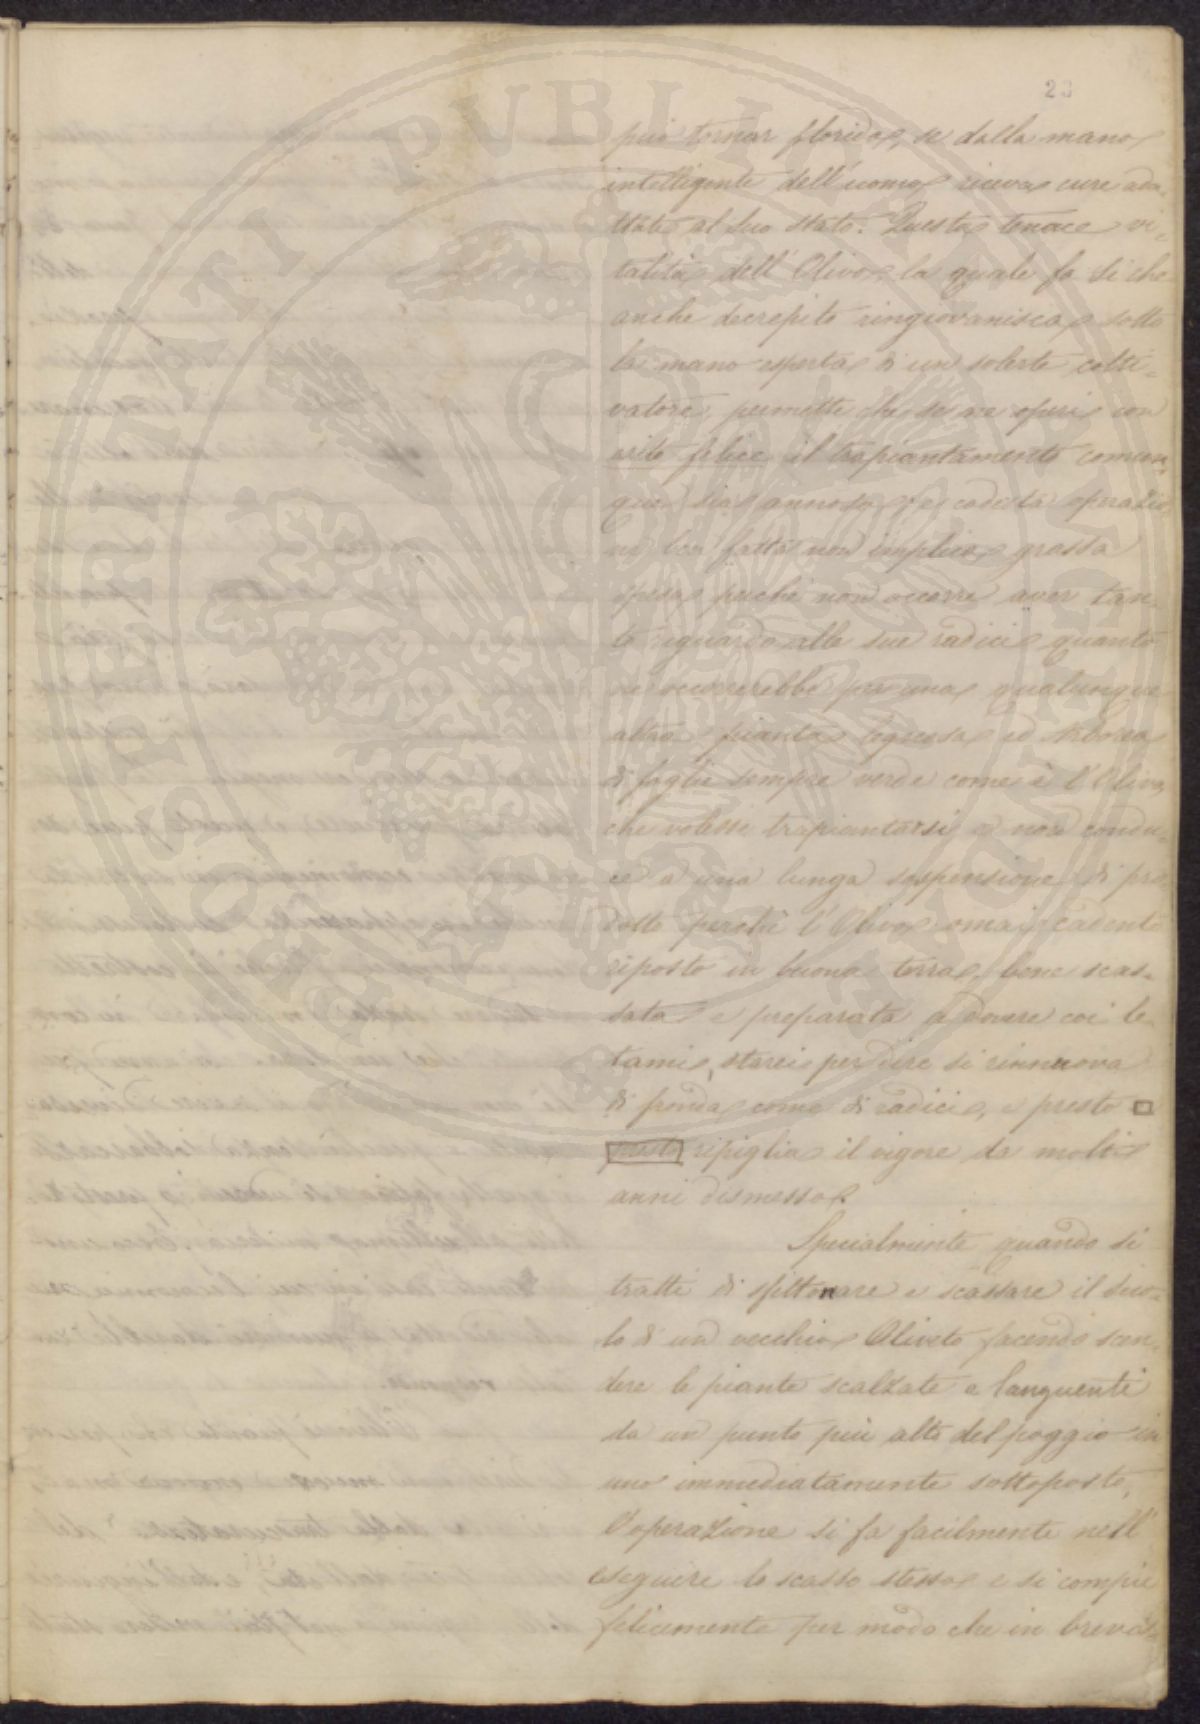 23
può tornar florido, se dalla mano
intelligente dell'uomo riceva cure ada-
ttate al suo stato. Questa tenace vi-
talità dell'Olivo, la quale fa si che
anche decrepito ringiovanisca, sotto
la mano esperta di un solerte colti-
vatore, permette che se ne operi con
esito felice il trapiantamento comun-
que sia annosa, e codesta operazio
ne ben fatta non implica grossa
spesa perchè non occorre aver tan-
to riguardo alle sue radici quanto
ne occorrerebbe per una qualunque
altra pianta legnosa ed arborea
di foglie sempre verde come è l'Olivo,
che volesse trapiantarsi e non condu-
ce a una lunga sospensione di pro
dotto perchè l'Olivo omai cadente
riposto in buona terra, bene scas-
sata e preparata a dovere coi le
tami, starei per dire si rinnuova
di fronda come di radici, e presto
presto ripiglia il vigore da molti
anni dismesso.
Specialmente quando si
tratti di spittonare e scassare il suo-
lo di un vecchio Oliveto facendo scen-
dere le piante scalzate e languenti
da un punto più alto del poggio in
uno immediatamente sottoposto,
l'operazione si fa facilmente nell'
eseguire lo scasso stesso e si compie
felicemente per modo che in brevis-
PROSPERITATI PVBLICAE AVGENDAE